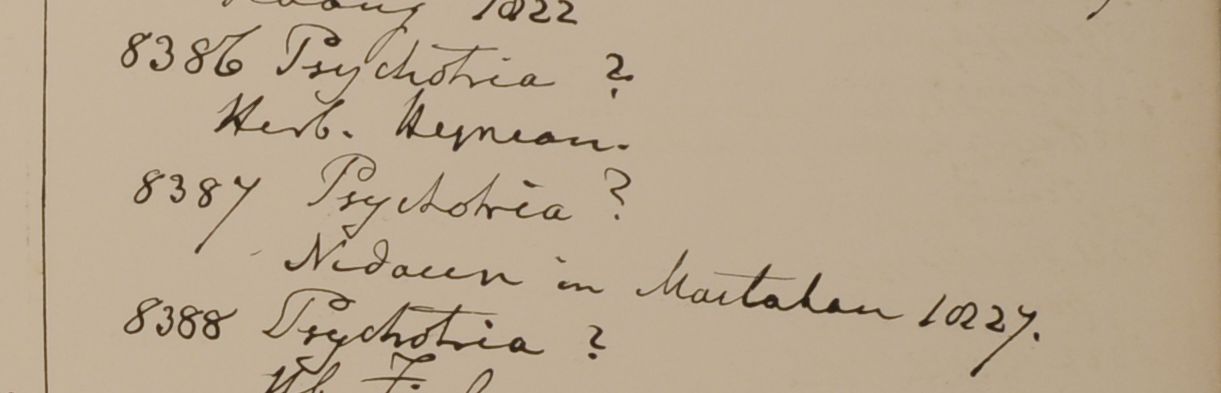 1822
8386 Psychotria ?
Herb. Heynean.
8387 Psychotria ?
in Martaban 1827.
8388 Psychotria ?